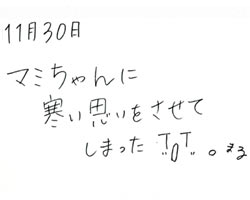 11月30日
マミちゃんに
寒い思いをさせて
しまった T0T 。まる